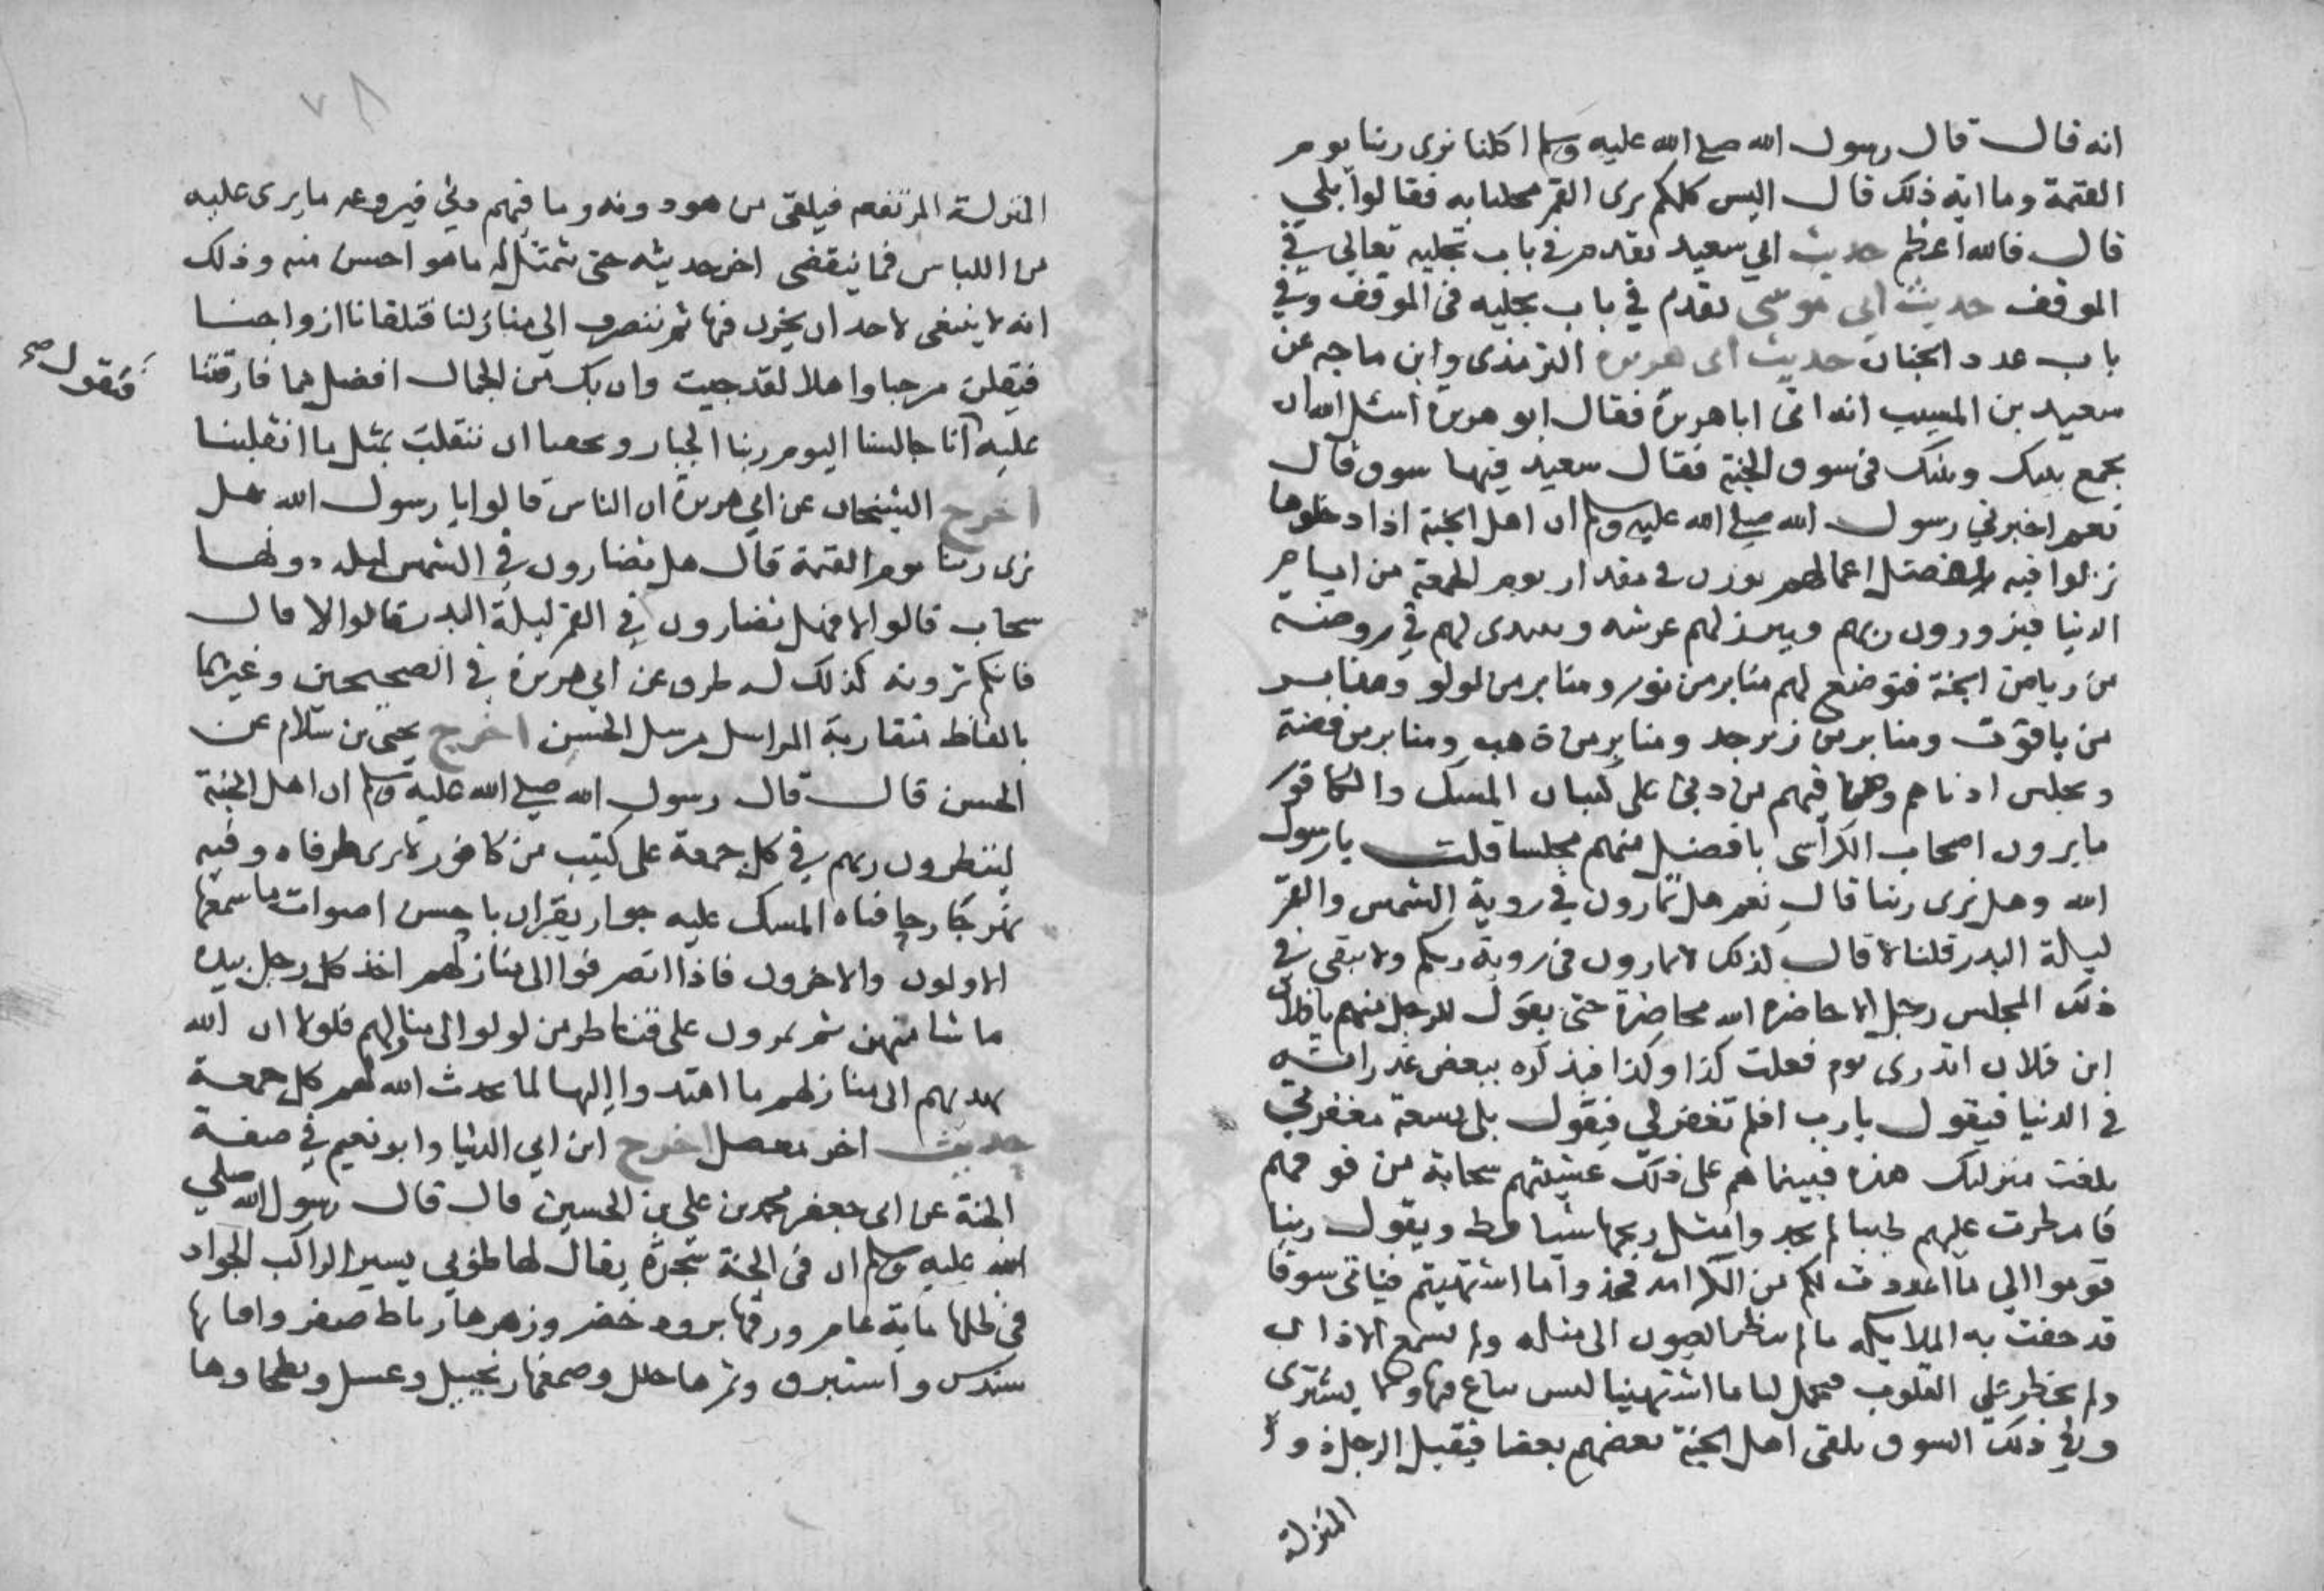 انه قال قال رسول الله صلي الله عليه وسلم اكلنا نرى ربنا يوم
القيمة وما اية ذلك قال اليس كلكم يرى القمر مخليا به فقالوا بلي
قال فالله اعظم حديث ابي سعيد تقدم في باب تجليه تعالي في
الموقف حديث ابي موسى تقدم في باب تجليه في الموقف وفي
باب عدد الجنان حديث ابى هريرة الترمذى وابن ماجه عن
سعيد بن المسيب انه اتى ابا هريرة فقال ابو هريرة اسئل الله ان
يجمع بيني وبينك في سوق الجنة فقال سعيد فيها سوق قال
نعم اخبرني رسول الله صلي الله عليه وسلم ان اهل الجنة اذا دخلوها
نزلوا فيها بفضل اعمالهم يوذن في مقدار يوم الجمعة من ايام
الدنيا فيزورون ربهم ويبرز لهم عرشه ويتبدى لهم في روضة
من رياض الجنة فتوضع لهم منابر من نور ومنابر من لولو ومنابر
من ياقوت ومنابر من زبرجد ومنابر من ذهب ومنابر من فضة
ويجلس ادناهم وما فيهم من دني على كثبان المسك والكافور
ما يرون اصحاب الكراسى بافضل منهم مجلسا قلت يا رسول
الله وهل نرى ربنا قال نعم هل تمارون في روية الشمس والقمر
ليلة البدر قلنا لا قال كذلك لا تمارون في روية ربكم ولا يبقى في
ذلك المجلس رجل الا حاضره الله محاضرة حتى يقول للرجل منهم يا فلان
ابن فلان اتدرى يوم فعلت كذا وكذا فيذكره ببعض غدراته
في الدنيا فيقول يا رب افلم تغفر لي فيقول بلى بسعة مغفرتي
بلغت منزلتك هذه فبينما هم على ذلك غشيتهم سحابة من فوقهم
فامطرت عليهم طيبا لم يجدوا مثل ريحها شيا قط ويقول ربنا
قوموا الي ما اعددت لكم من الكرامة فخذوا ما اشتهيتم فناتى سوقا
قد حفت به الملايكة ما لم تنظر العيون الى مثله ولم تسمع الاذان
ولم يخطر علي القلوب فيحمل لنا ما اشتهينا ليس يباع فيها ولا يشترى
وفي ذلك السوق يلقى اهل الجنة بعضهم بعضا فيقبل الرجل ذو
المنزلة
٧٨
المنزلة المرتفعة فيلقى من هو دونه وما فيهم دني فيروعه ما يرى عليه
من اللباس فما ينقضى اخر حديثه حتى يتمثل له ما هو احسن منه وذلك
انه لا ينبغى لاحد ان يحزن فيها ثم ننصرف الي منازلنا فتلقانا ازواجنا
فيقلن مرحبا واهلا لقد جيت وان بك من الجمال افضل مما فارقتنا
فنقول صح
عليه انا جالسنا اليوم ربنا الجبار ويحقنا ان ننقلب بمثل ما انقلبنا
اخرج الشيخان عن ابي هريرة ان الناس قالوا يا رسول الله هل
نرى ربنا يوم القيمة قال هل تضارون في الشمس ليس دونها
سحاب قالوا لا فهل تضارون في القمر ليلة البدر قالوا لا قال
فانكم ترونه كذلك له طرق عن ابي هريرة في الصحيحين وغيرهما
بالفاظ متقاربة المراسل مرسل الحسن اخرج يحيى بن سلام عن
الحسن قال قال رسول الله صلي الله عليه وسلم ان اهل الجنة
لينظرون ربهم في كل جمعة على كثيب من كافور لا يرى طرفاه وفيه
نهر جار حافتاه المسك عليه جوار يقران باحسن اصوات ما سمعها
الاولون والاخرون فاذا انصرفوا الى منازلهم اخذ كل رجل بيده
ما شا منهن ثم يمرون على قناطر من لولو الى منازلهم فلولا ان الله
يهديهم الى منازلهم ما اهتدوا اليها لما يحدث الله لهم كل جمعة
حديث اخر معضل اخرج ابن ابي الدنيا وابو نعيم في صفة
الجنة عن ابى جعفر محمد بن علي بن الحسين قال قال رسول الله صلي
الله عليه وسلم ان في الجنة شجرة يقال لها طوبي يسير الراكب الجواد
في ظلها ماية عام ورقها برود خضر وزهرها رياط صفر وافنانها
سندس واستبرق وثمرها حلل وصمغها زنجبيل وعسل وبطحاوها